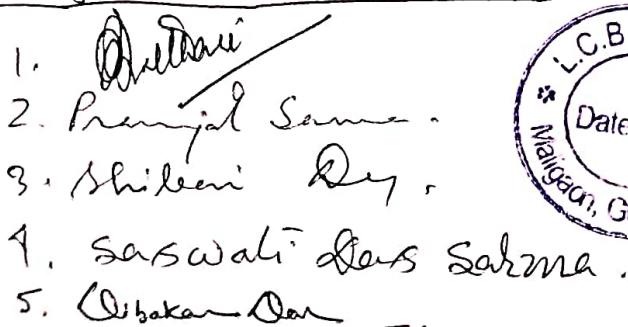 1.
2. Pranjal Sarma.
3. Shibani Dey.
4. Saswati Das Sarma.
5. Dibakar Das
L.C.B
Date
Maligaon, G